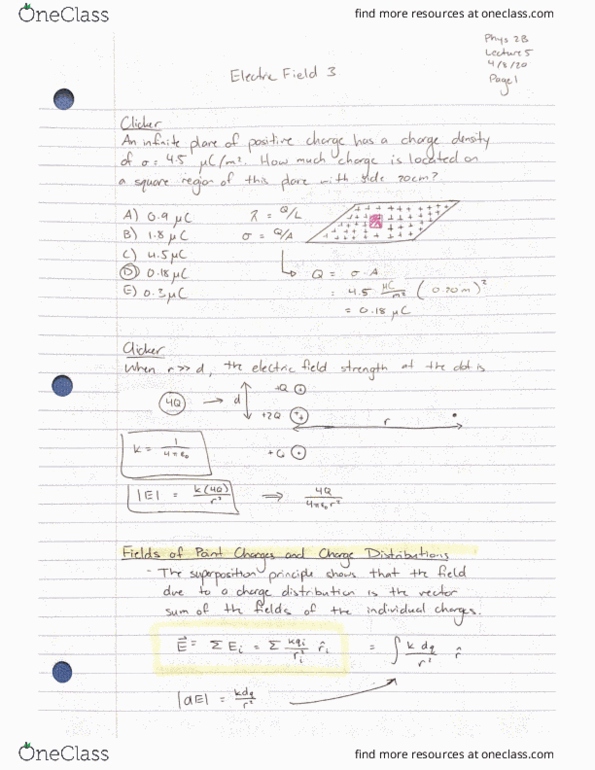 OneClass
find more resources at oneclass.com
Phys 2B
Lecture 5
4/8/20
Page 1
Electric Field 3
Clicker
An infinite plane of positive charge has a charge density
of σ = 4.5 μC/m². How much charge is located on
a square region of this plane with side 20cm?
A) 0.9 μC
B) 1.8 μC
C) 4.5 μC
D) 0.18 μC
E) 0.3 μC
λ = Q/L
σ = Q/A
Q = σ · A
= 4.5 μC/m² (0.20m)²
= 0.18 μC
Clicker
When r >> d, the electric field strength at the dot is
4Q → d
+Q
+2Q
r
+Q
k = 1/4πε₀
|E| = k(4Q)/r² ⇒ 4Q/4πε₀r²
Fields of Point Charges and Charge Distributions
- The superposition principle shows that the field
due to a charge distribution is the vector
sum of the fields of the individual charges.
E⃗ = Σ Eᵢ = Σ kqᵢ/rᵢ² r̂ᵢ = ∫ k dq/r² r̂
|dE| = kdq/r²
OneClass
find more resources at oneclass.com